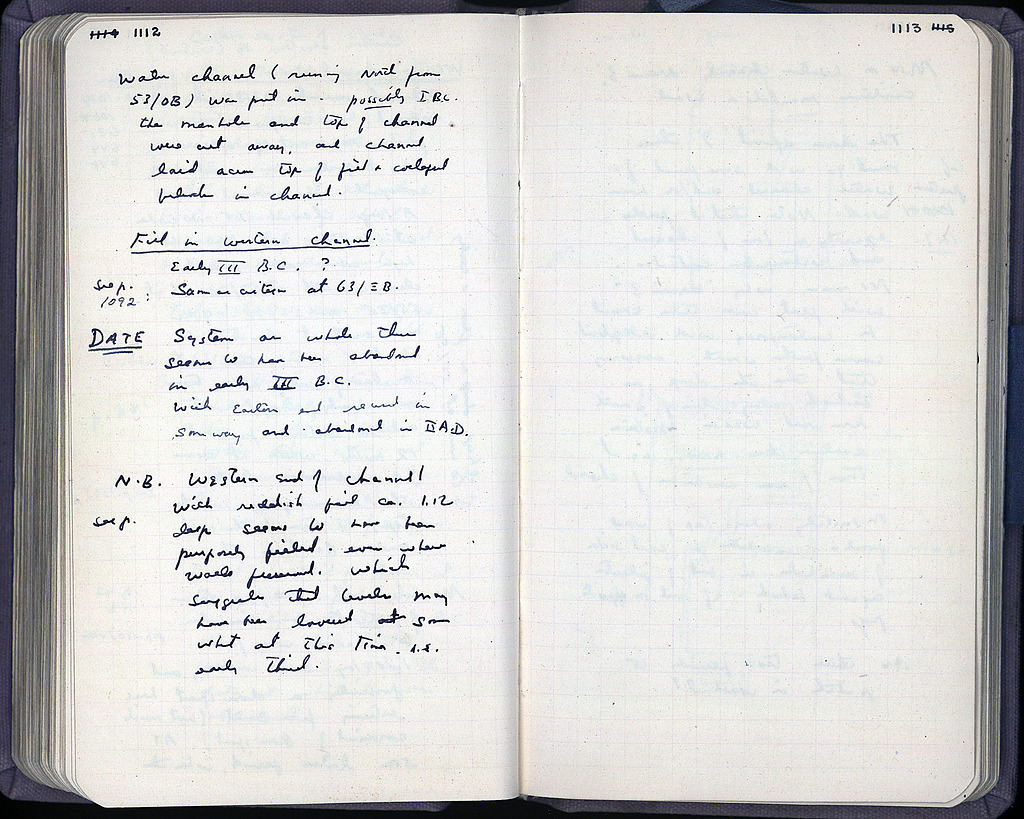 1114 1112
water channel (running North from
53/ΘB) was put in. possibly I B.C.
the manhole and top of channel
were cut away, and channel
laid across top of fill & collapsed
in channel.
Fill in western channel.
Early III B.C. ?
See p. 1092: Same as cistern at 63/ΞB.
DATE System as whole then
seems to have been abandoned
in early III B.C.
with Eastern end reused in
some way and abandoned in II A.D.
N.B. Western end of channel
with reddish fill ca. 1.12
see p. deep seems to have been
purposely filled. even where
walls preserved. which
suggests that levels may
have been lowered some
what at this time. i.e.
early third.
1113 1115